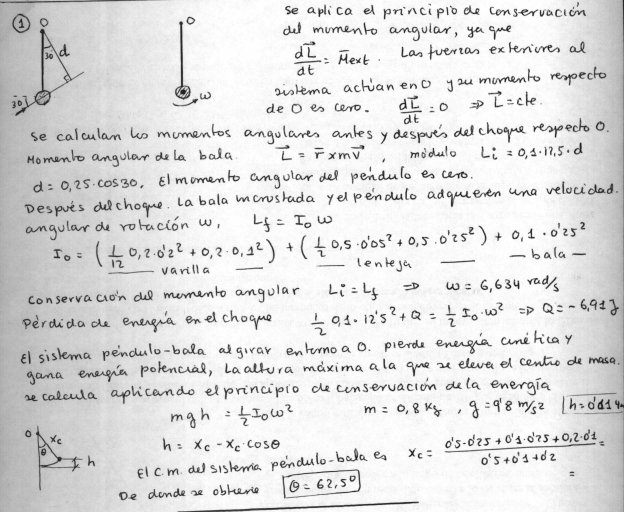 ① O 30 d 30 O ω
se aplica el principio de conservación
del momento angular, ya que
dL/dt = Mext. Las fuerzas exteriores al
sistema actúan en O y su momento respecto
de O es cero. dL/dt = 0 ⇒ L = cte.
se calculan los momentos angulares antes y después del choque respecto O.
Momento angular de la bala. L = r x mv, módulo Li = 0,1·12,5·d
d = 0,25·cos30. El momento angular del péndulo es cero.
Después del choque. La bala incrustada y el péndulo adquieren una velocidad.
angular de rotación ω, Lf = Io ω
Io = (1/12 0,2·0'2² + 0,2·0,1²) + (1/2 0,5·0'05² + 0,5·0'25²) + 0,1·0'25²
varilla lenteja bala
conservación del momento angular Li = Lf ⇒ ω = 6,634 rad/s
Pérdida de energía en el choque 1/2 0,1·12'5² + Q = 1/2 Io·ω² ⇒ Q = -6,91 J
El sistema péndulo-bala al girar entorno a O. pierde energía cinética y
gana energía potencial, La altura máxima a la que se eleva el centro de masa.
se calcula aplicando el principio de conservación de la energía
mgh = 1/2 Io ω² m = 0,8 kg, g = 9'8 m/s2 h = 0'114m
O xc θ h
h = xc - xc·cosθ
El c.m. del sistema péndulo-bala es xc = (0'5·0'25 + 0'1·0'25 + 0,2·0'1)/(0'5 + 0'1 + 0'2) =
=
De donde se obtiene θ = 62,5º